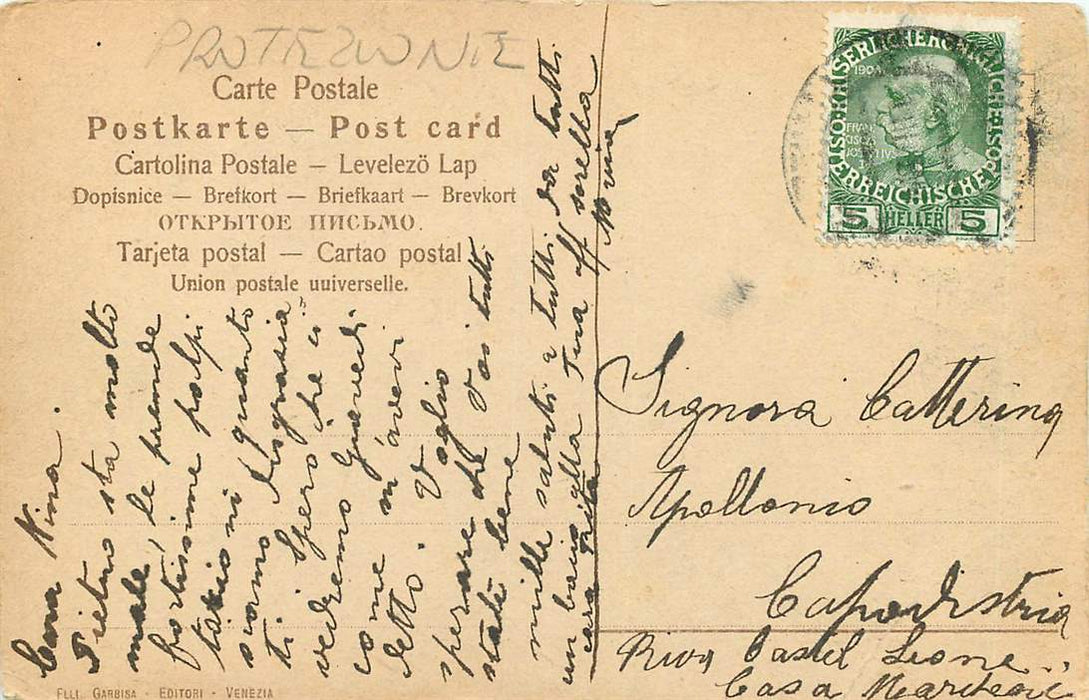 PROTEZIONE
Carte Postale
Postkarte — Post card
Cartolina Postale — Levelezö Lap
Dopisnice — Brefkort — Briefkaart — Brevkort
ОТКРЫТОЕ ПИСЬМО.
Tarjeta postal — Cartao postal
Union postale uuiverselle.
KAISERLICHE KÖNIGLICHE ÖSTERREICHISCHE POST
1908
5 HELLER 5
Cara Nina.
Pietro sta molto
male, le
fortissime palpi
tazioni, quanto
siamo disgrazia
ti. Spero che ci
vedremo Giovedi
come m'avevi
detto. Voglio
sperare che Voi tutti
state bene
mille saluti a tutti da tutti
un bacio alla Tua aff sorella
cara Rita Maria
Signora Catterina
Apollonio
Capodistria
Riva Castel Leone
Casa
FLLI. GARBISA - EDITORI - VENEZIA